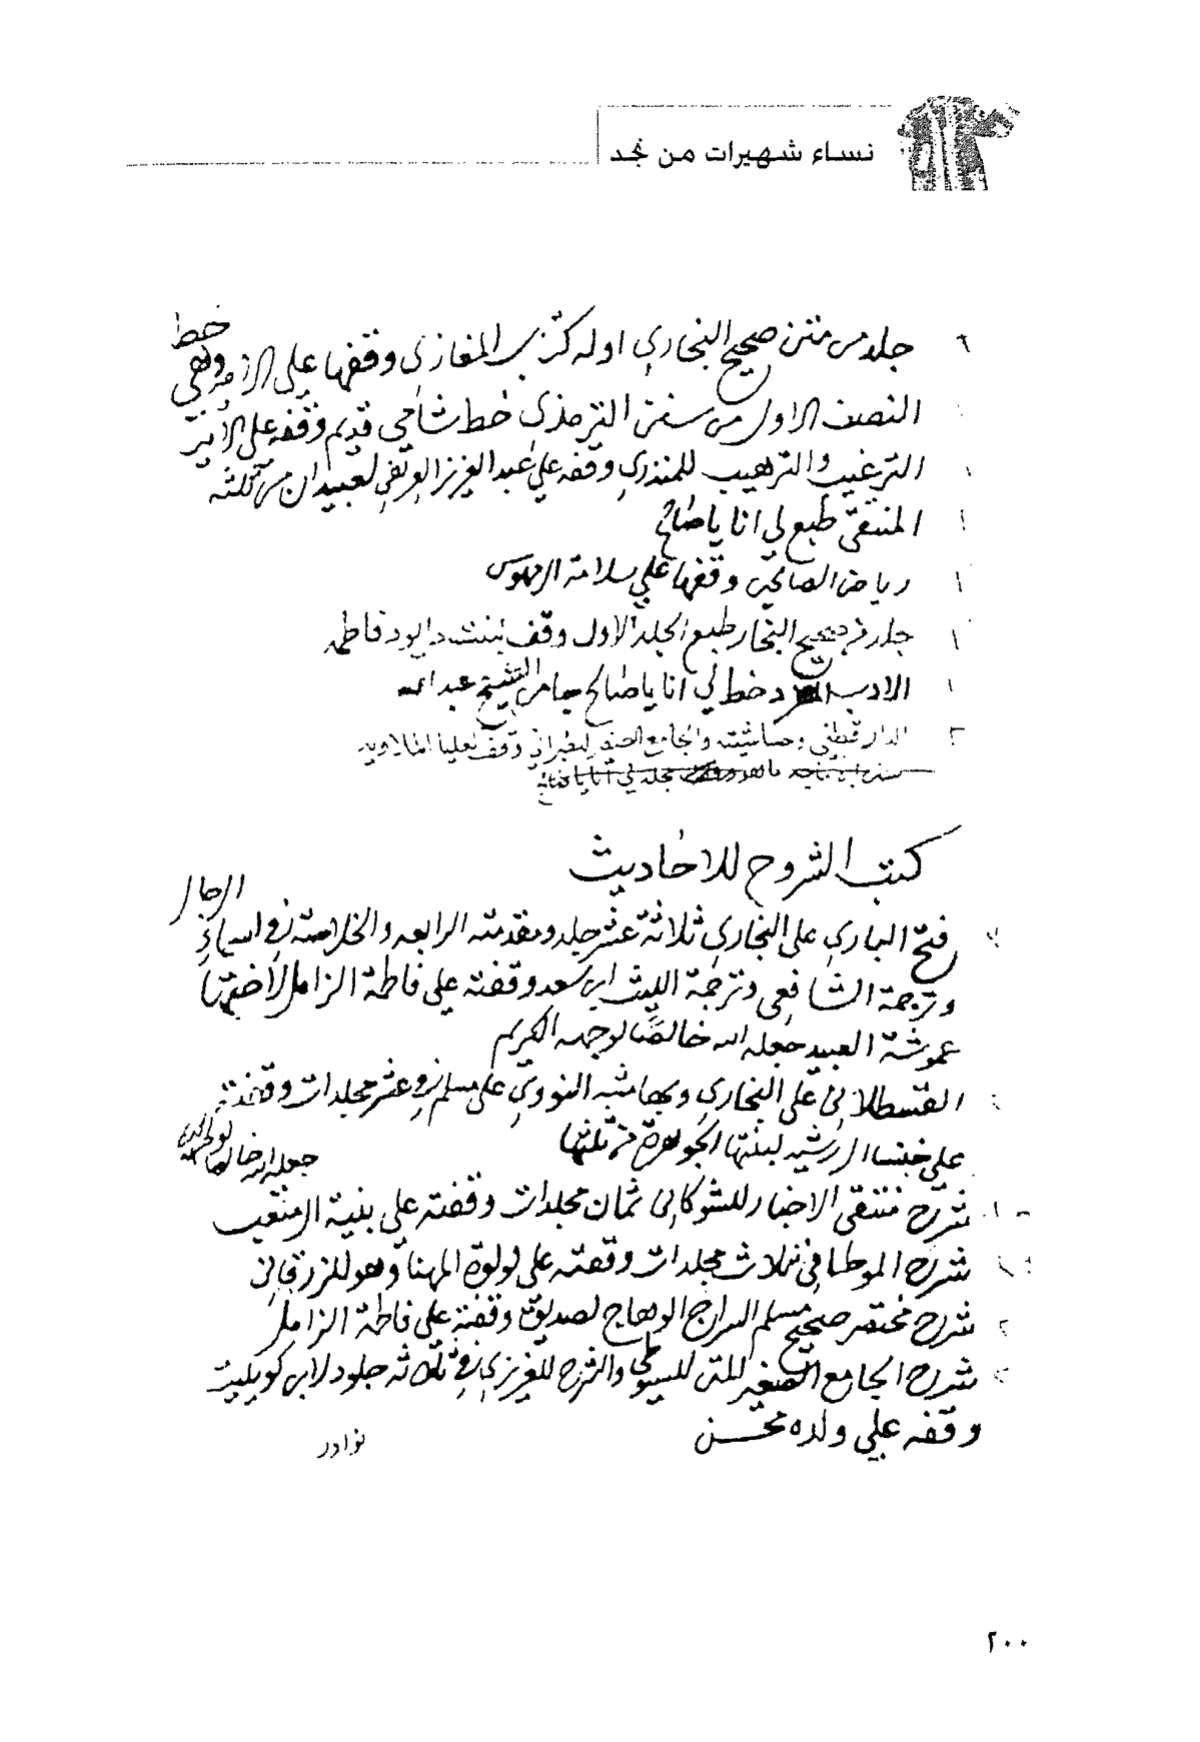 نساء شهيرات من نجد
جلد من متن صحيح البخاري اوله كتاب المغازي وقفها علي وهي خط
النصف الاول من سنن الترمذي خط شامي قديم وقفه على
١ الترغيب والترهيب للمنذري وقفه علي عبد العزيز لعبيدان من ثلثه
١ المنتقى طبع لي انا يا صالح
١ رياض الصالحين وقفها علي سلامة
١ جلد من صحيح البخار طبع الجلد الاول وقف بنت دايود فاطمه
١ الادب المفرد خط لي انا يا صالح جا من الشيخ عبد الله
الدار قطني وحاشيته والجامع الصغير للطبراني وقف
سنن ابن ماجه مجلد لي انا يا صالح
كتب الشروح للاحاديث
فتح الباري على البخاري ثلاثة عشر جلد ومقدمته الرابعه والخلاصة في اسماء الرجال
وترجمة الشافعي وترجمة الليث ابن سعد وقفته علي فاطمة الزامل لاختها
عموشة العبيد جعله الله خالصًا لوجهه الكريم
القسطلاني على البخاري وبهامشه النووي على مسلم في عشر مجلدات وقفته
علي خنسا الرشيد لبنتها الجوهرة من ثلثها جعله الله خالصا لوجهه الكريم
شرح منتقى الاخبار للشوكاني ثمان مجلدات وقفته علي بنية المنتعب
شرح الموطا في ثلاث مجلدات وقفته على لولوة المهنا وهو للزرقاني
٢ شرح مختصر صحيح مسلم السراج الوهاج لصديق وقفته علي فاطمة الزامل
شرح الجامع الصغير للمتن للسيوطي والشرح للعزيزي في ثلاثه جلود لابن كويليت
وقفه علي ولده محسن
نوادر
٢٠٠